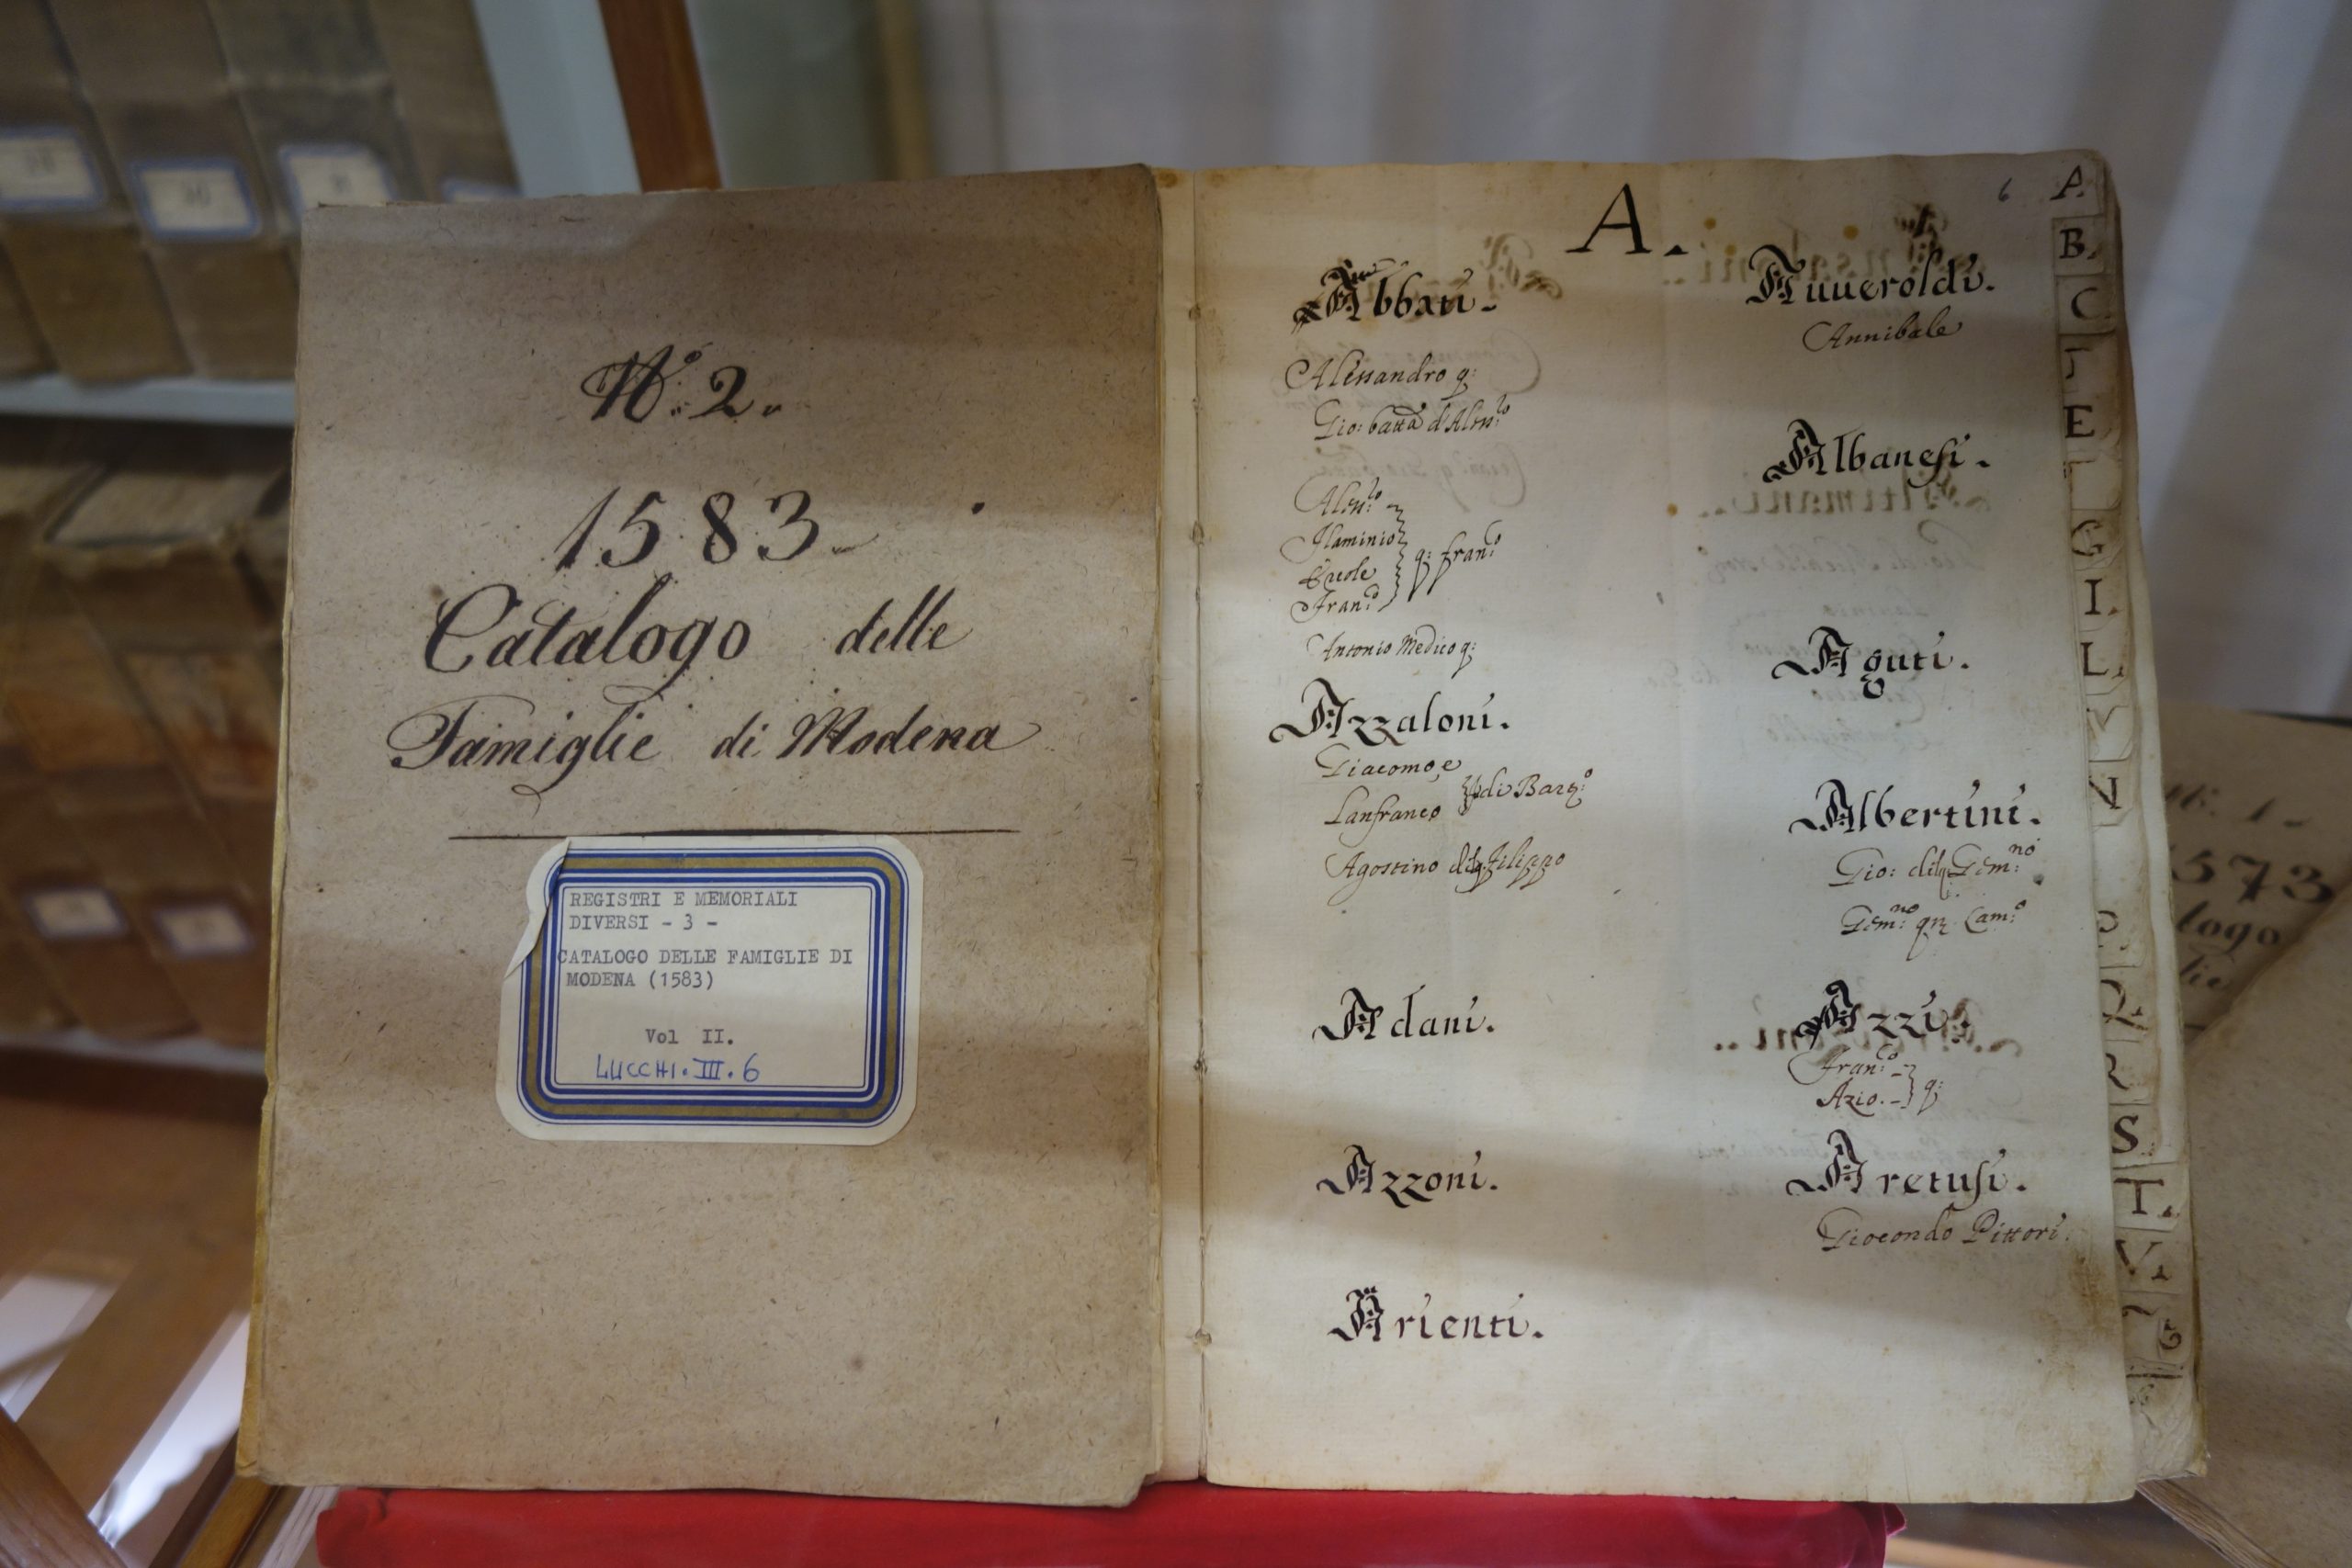 N.º 2.
1583
Catalogo delle
Famiglie di Modena
REGISTRI E MEMORIALI
DIVERSI - 3 -
CATALOGO DELLE FAMIGLIE DI
MODENA (1583)
Vol II.
LUCCHI.III.6
6
A.
Abbati.
Alessandro q:
Gio: batta d'Aless:ro
Flaminio
Ercole
Fran:co
q: Fran:co
Antonio Medico q:
Azzaloni.
Giacomo, e
Lanfranco
di Bart:o
Agostino Filippo
Adani.
Azzoni.
Arienti.
Auueroldi.
Annibale
Albanesi.
Aguti.
Albertini.
Gio: Gem:no
Gem:no Cam:o
Azzi.
Fran:co
Azio.
q:
Aretusi.
Giocondo Pittori.
A.
B.
C
E
G
I.
L.
N
S
T.
V.
1573